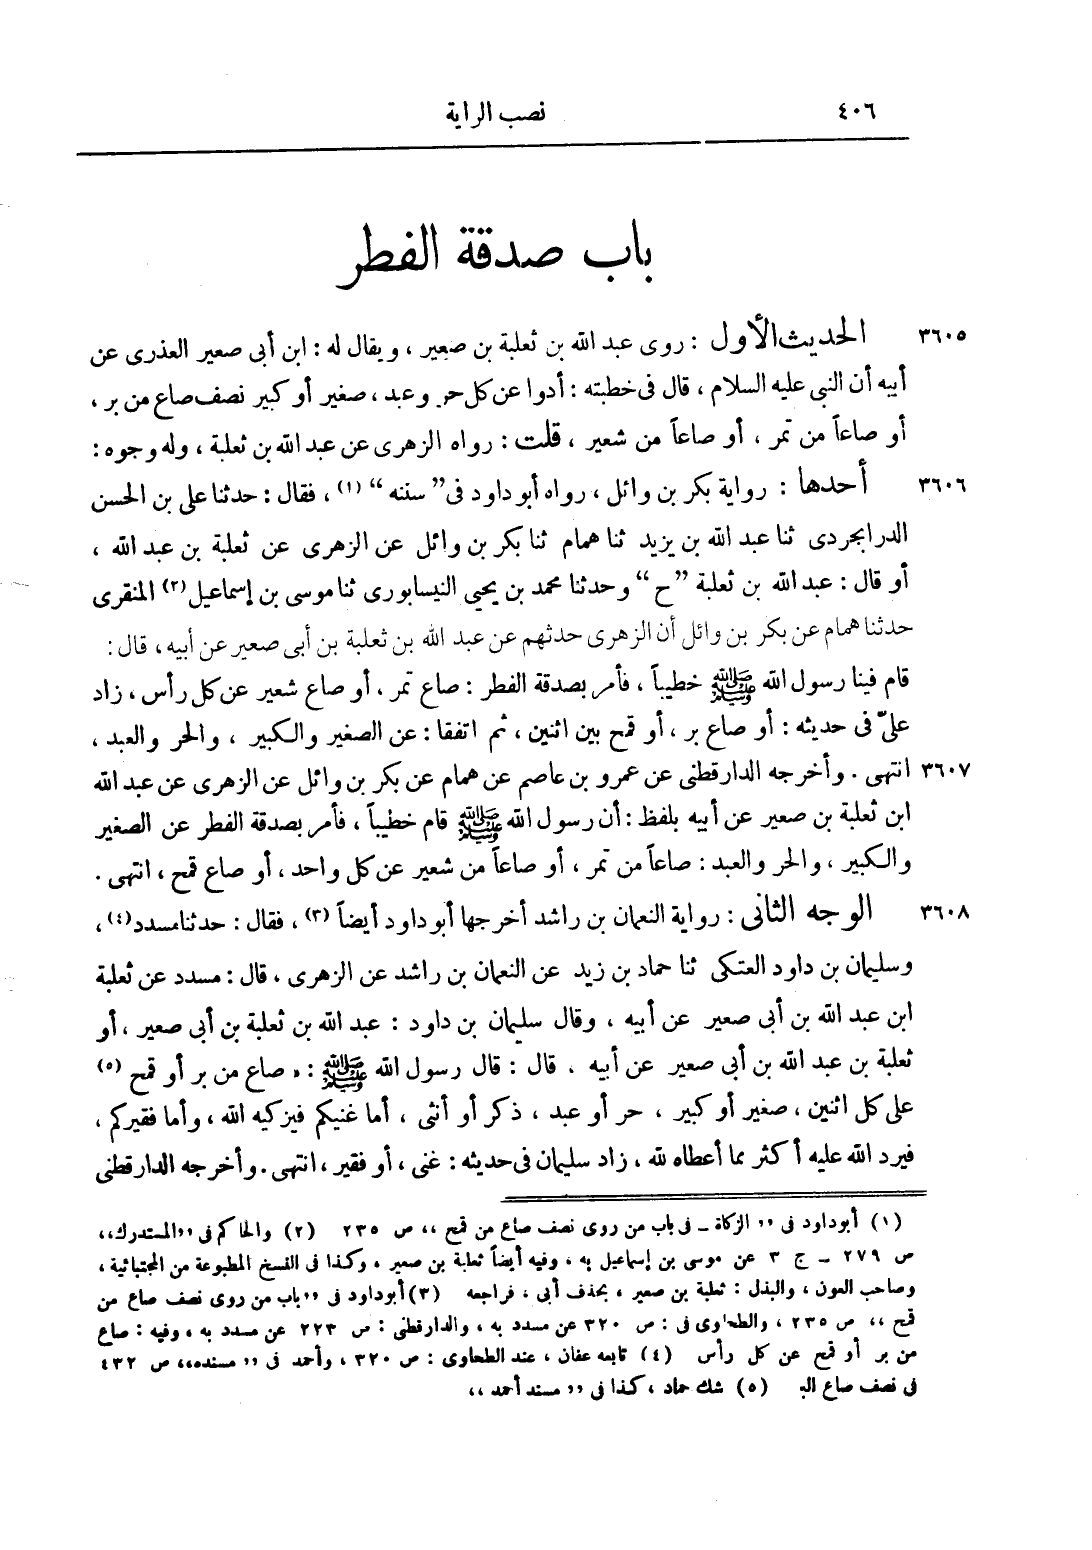 ٤٠٦
نصب الراية
باب صدقة الفطر
٣٦٠٥ الحديث الأول : روى عبد الله بن ثعلبة بن صعير ، ويقال له : ابن أبى صعير العذرى عن
أبيه أن النبي عليه السلام ، قال فى خطبته : أدوا عن كل حر وعبد ، صغير أو كبير نصف صاع من بر ،
أو صاعاً من تمر ، أو صاعاً من شعير ، قلت : رواه الزهرى عن عبد الله بن ثعلبة ، وله وجوه :
٣٦٠٦ أحدها : رواية بكر بن وائل ، رواه أبو داود فى " سننه " (١) ، فقال : حدثنا على بن الحسن
الدرابجردى ثنا عبد الله بن يزيد ثنا همام ثنا بكر بن وائل عن الزهرى عن ثعلبة بن عبد الله ،
أو قال : عبد الله بن ثعلبة "ح" وحدثنا محمد بن يحيى النيسابورى ثنا موسى بن إسماعيل (٢) المنقرى
حدثنا همام عن بكر بن وائل أن الزهرى حدثهم عن عبد الله بن ثعلبة بن أبى صعير عن أبيه ، قال :
قام فينا رسول الله ﷺ خطيباً ، فأمر بصدقة الفطر : صاع تمر ، أو صاع شعير عن كل رأس ، زاد
علىّ فى حديثه : أو صاع بر ، أو قمح بين اثنين ، ثم اتفقا : عن الصغير والكبير ، والحر والعبد ،
٣٦٠٧ انتهى . وأخرجه الدارقطنى عن عمرو بن عاصم عن همام عن بكر بن وائل عن الزهرى عن عبد الله
ابن ثعلبة بن صعير عن أبيه بلفظ : أن رسول الله ﷺ قام خطيباً ، فأمر بصدقة الفطر عن الصغير
والكبير ، والحر والعبد : صاعاً من تمر ، أو صاعاً من شعير عن كل واحد ، أو صاع قمح ، انتهى .
٣٦٠٨ الوجه الثانى : رواية النعمان بن راشد أخرجها أبو داود أيضاً (٣) ، فقال : حدثنا مسدد (٤) ،
وسليمان بن داود العتكى ثنا حماد بن زيد عن النعمان بن راشد عن الزهرى ، قال : مسدد عن ثعلبة
ابن عبد الله بن أبى صعير عن أبيه ، وقال سليمان بن داود : عبد الله بن ثعلبة بن أبى صعير ، أو
ثعلبة بن عبد الله بن أبى صعير عن أبيه ، قال : قال رسول الله ﷺ : « صاع من بر أو قمح (٥)
على كل اثنين ، صغير أو كبير ، حر أو عبد ، ذكر أو أنثى ، أما غنيكم فيزكيه الله ، وأما فقيركم ،
فيرد الله عليه أكثر مما أعطاه لله ، زاد سليمان فى حديثه : غنى ، أو فقير ، انتهى . وأخرجه الدارقطنى
(١) أبو داود فى ,, الزكاة ـ فى باب من روى نصف صاع من قمح ،، ص ٢٣٥ (٢) والحاكم فى ,,المستدرك،،
ص ٢٧٩ ـ ج ٣ عن موسى بن إسماعيل به ، وفيه أيضاً ثعلبة بن صعير ، وكذا فى النسخ المطبوعة من المجتبائية ،
وصاحب العون ، والبذل : ثعلبة بن صعير ، بحذف أبى ، فراجعه (٣) أبو داود فى ,,باب من روى نصف صاع من
قمح ،، ص ٢٣٥ ، والطحاوى فى : ص ٣٢٠ عن مسدد به ، والدارقطنى : ص ٢٢٣ عن مسدد به ، وفيه : صاع
من بر أو قمح عن كل رأس (٤) تابعه عفان ، عند الطحاوى : ص ٣٢٠ ، وأحمد فى ,, مسنده،، ص ٤٣٢
فى نصف صاع البر (٥) شك حماد ، كذا فى ,, مسند أحمد ،،